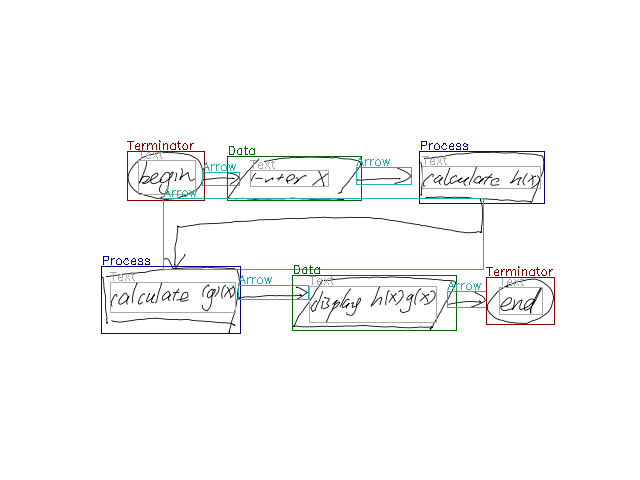 Terminator
Text
begin
Arrow
Data
Text
enter x
Arrow
Process
Text
calculate h(x)
Arrow
Process
Text
calculate g(x)
Arrow
Data
Text
display h(x)g(x)
Arrow
Terminator
Text
end